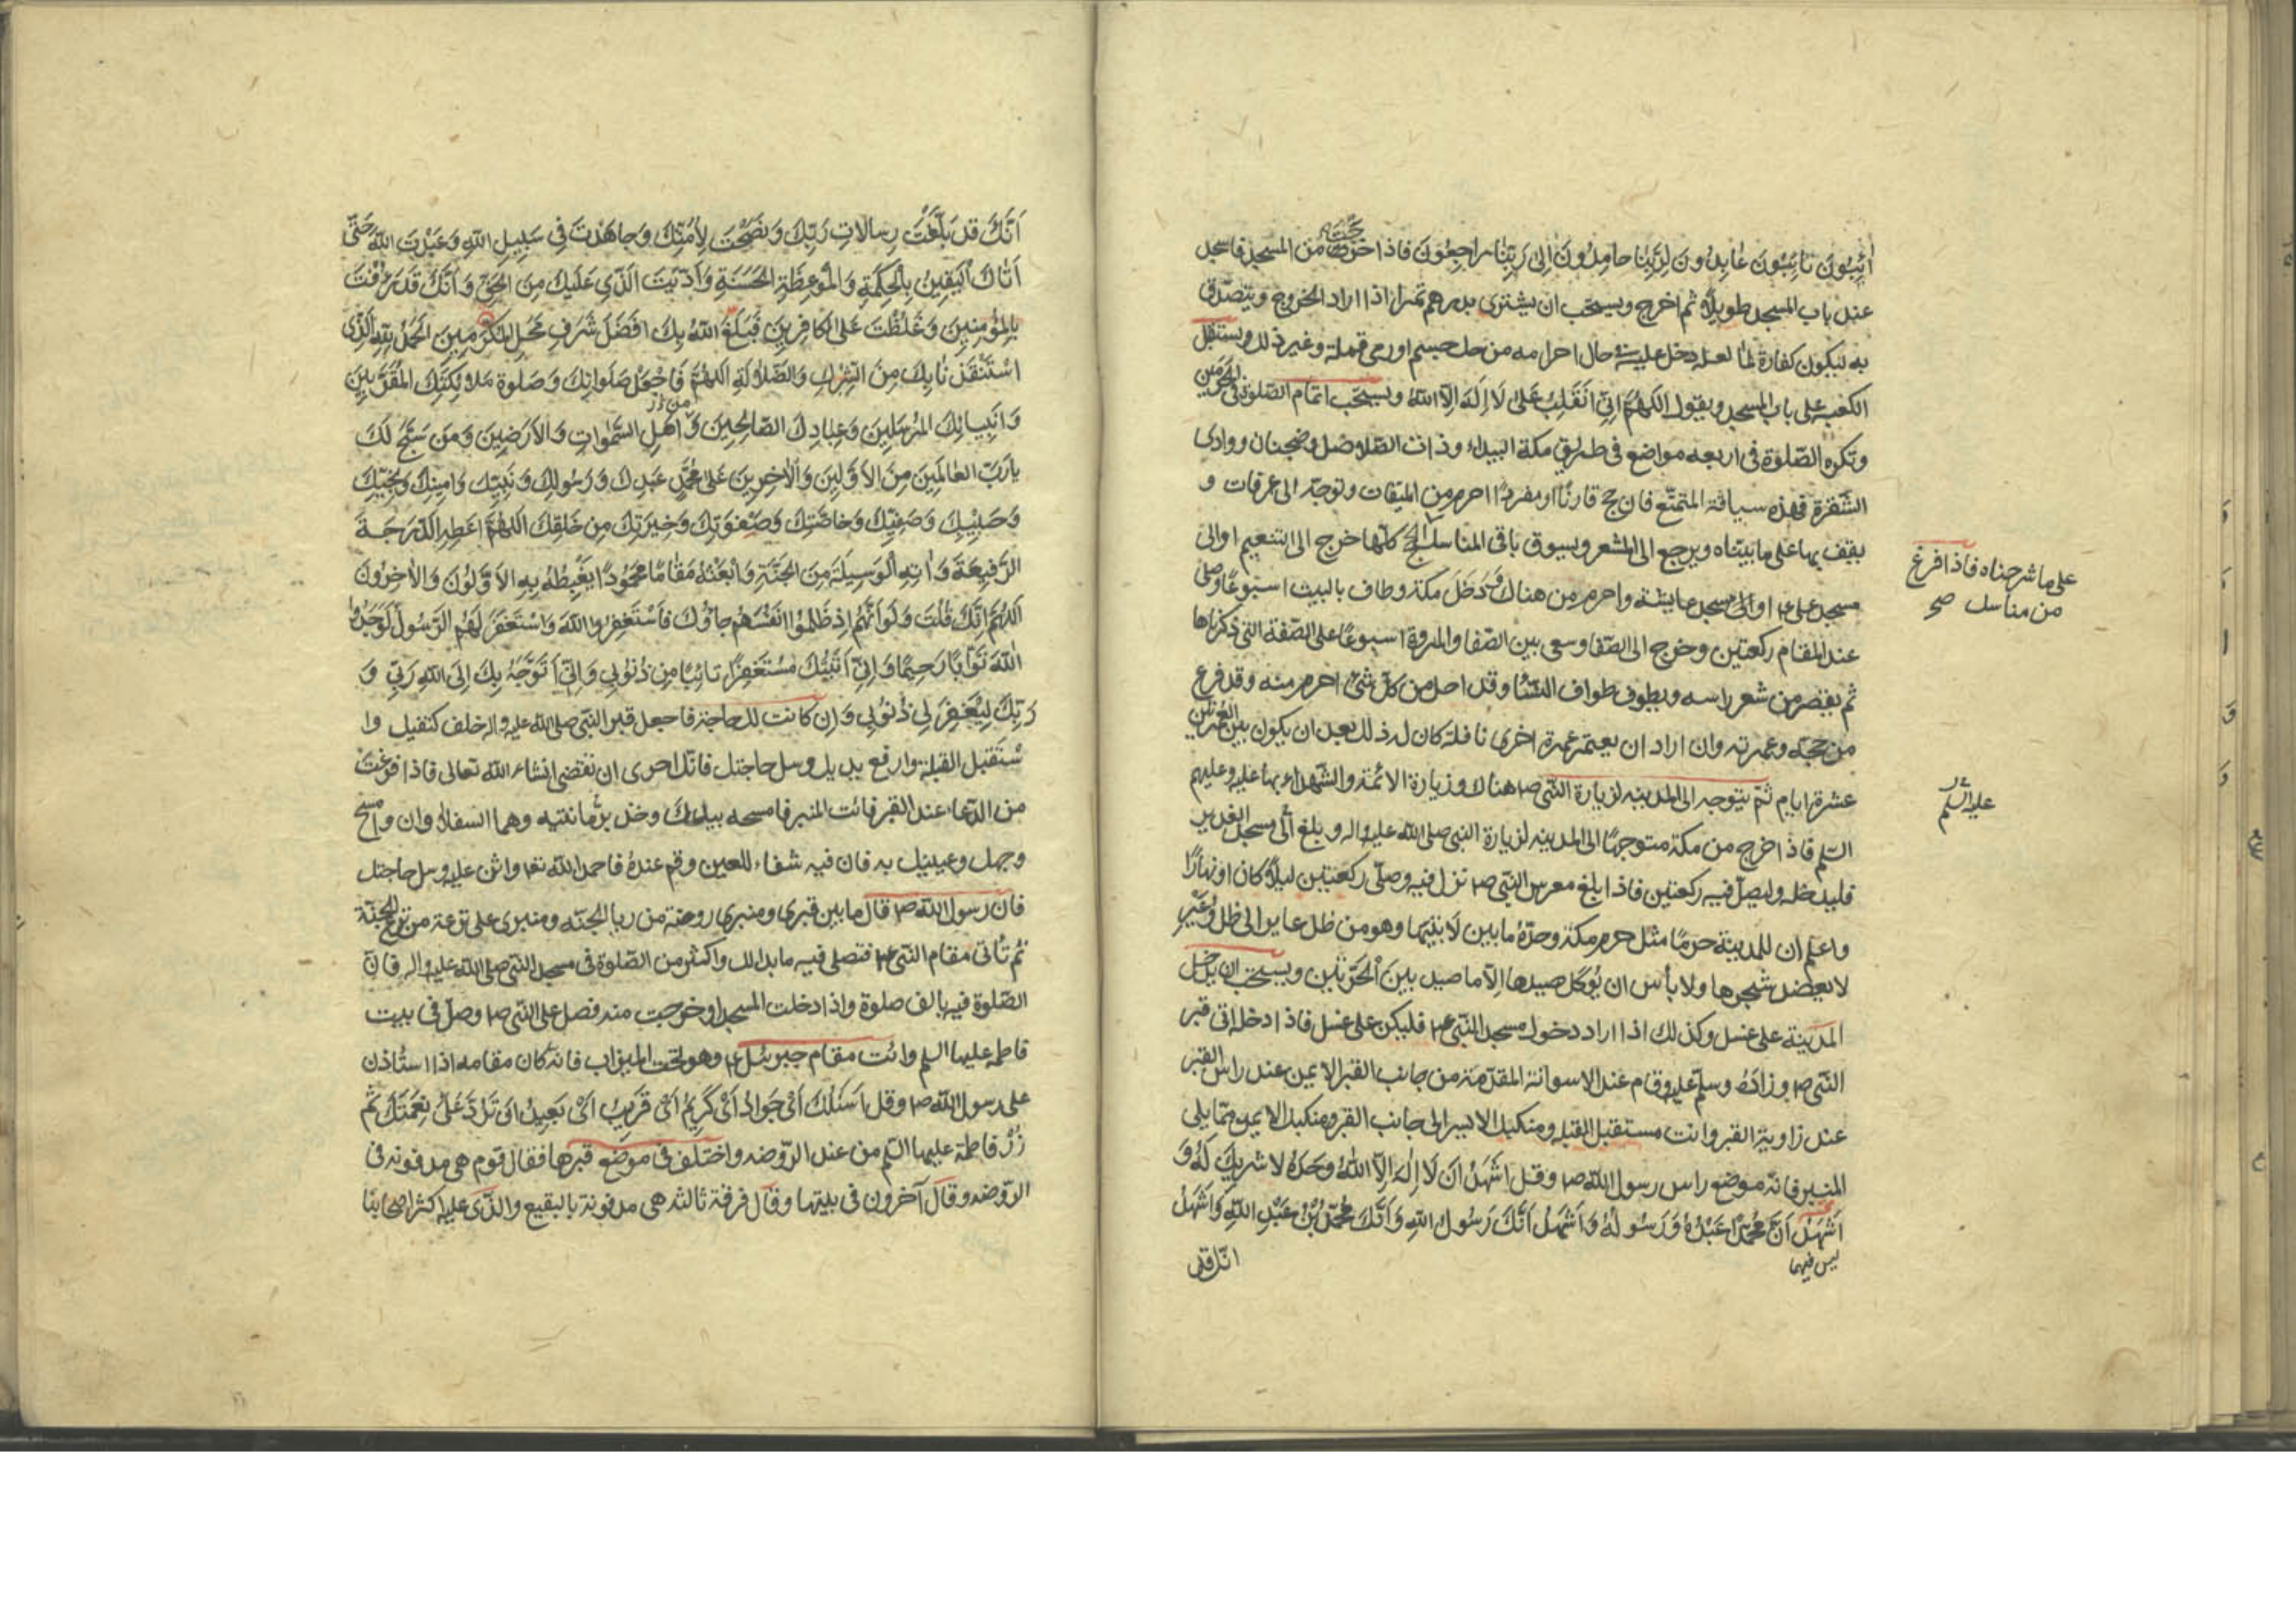 آئِبُونَ تائِبُونَ عابِدُونَ لِرَبِّنا حامِدُونَ إلى رَبِّنا راجِعُونَ فاذا خرجت من المسجد فاسجد
عند باب المسجد طويلًا ثم اخرج ويستحب ان يشترى بدرهم تمرا اذا اراد الخروج ويتصدق
به ليكون كفارة لما لعله دخل عليه فى حال احرامه من حك جسم او رمى قملة وغير ذلك ويستقبل
الكعبه على باب المسجد ويقول اللهُمَّ اِنّى اَنْقَلِبُ عَلىٰ لَا اِلٰهَ اِلَّا اللهُ ويستحب اتمام الصلوة فى الحرمين
وتكره الصّلوة فى اربعه مواضع فى طريق مكة البيداء وذات الصّلاصل وضجنان ووادى
الشّقرة فهذه سياقة المتمتّع فان حج قارنًا او مفردًا احرم من الميقات وتوجّه الى عرفات و
يقف بها على ما بيّناه ويرجع الى المشعر ويسوق باقى المناسك الحج كلّها خرج الى التنعيم او الى
على ما شرحناه فاذا افرغ
من مناسك صح
مسجد على ع او الى مسجد عايشة واحرم من هناك وَدَخَلَ مكة وطاف بالبيت اسبوعًا وصلى
عند المقام ركعتين وخرج الى الصّفا وسعى بين الصّفا والمروة اسبوعًا على الصّفة التى ذكرناها
ثم يقصر من شعر راسه ويطوف طواف النّسآ وقد احل من كلّ شئ احرم منه وقد فرغ
من حجّه وعمرته وان اراد ان يعتمر عمرة اخرى نافلة كان له ذلك بعد ان يكون بين العمرتين
عشرة ايام ثمّ يتوجه الى المدينه لزيارة النّبى ص هناك وزيارة الائمّة والشّهداء بها عليه وعليهم
عليه السّلم
السّلم فاذا خرج من مكة متوجهًا الى المدينه لزيارة النبى صلى الله عليه واله وبلغ الى مسجد الغدير
فليدخله وليصلّ فيه ركعتين فاذا بلغ معرس النّبى ص نزل فيه وصلّى ركعتين ليلًا كان او نهارًا
واعلم ان للمدينة حرمًا مثل حرم مكة وحدّهُ ما بين لابتيها وهو من ظل عاير الى ظل وعير
لا يعضد شجرها ولا بأس ان يُوكل صيدها الّا ما صيد بين الحَرَّتَين ويستحب ان يدخل
المدينة على غسل وكذلك اذا اراد دخول مسجد النّبى ع فليكن على غسل فاذا دخله اتى قبر
النّبى ص وزارَهُ وسلّم عليه وقام عند الاسوانة المقدّمة من جانب القبر الايمن عند راس القبر
عند زاوية القبر وانت مستقبل القبله ومنكبك الايسر الى جانب القبر ومنكبك الايمن ممّا يلى
المنبر فانّه موضع راس رسول اللّه ص وقل اَشْهَدُ اَنْ لَا اِلٰهَ اِلَّا اللهُ وَحْدَهُ لا شَريكَ لَهُ وَ
اَشْهَدُ اَنَّ مُحَمَّدًا عَبْدُهُ وَرَسُولُهُ وَاَشْهَدُ اَنَّكَ رَسُولُ اللهِ وَاَنَّكَ مُحَمَّدُ بْنُ عَبْدِ اللهِ وَاَشْهَدُ
ليس فيهما
انّك قد
اَنَّكَ قد بَلَّغْتَ رِسالاتِ رَبِّكَ وَنَصَحْتَ لِاُمَّتِكَ وَجاهَدْتَ فى سَبيلِ اللهِ وَعَبَدْتَ اللهَ حَتّى
اَتاكَ اليَقينُ بِالحِكْمَةِ وَالمَوْعِظَةِ الحَسَنَةِ وَاَدَّيْتَ الَّذى عَلَيْكَ مِنَ الحَقِّ وَاَنَّكَ قَدْ رَؤُفْتَ
بِالمُؤمِنينَ وَغَلُظْتَ عَلَى الكافِرينَ فَبَلَغَ اللهُ بِكَ اَفْضَلَ شَرَفِ مَحَلِّ المُكَرَّمينَ الحَمْدُ للهِ الَّذى
اسْتَنْقَذَنا بِكَ مِنَ الشِّرْكِ وَالضَّلالَةِ اللهُمَّ فَاجْعَلْ صَلَواتِكَ وَصَلوةَ مَلائِكَتِكَ المُقَرَّبينَ
وَاَنْبِيائِكَ المُرْسَلينَ وَعِبادِكَ الصّالِحينَ وَاَهْلِ السَّمٰواتِ وَالاَرَضينَ وَمَنْ سَبَّحَ لَكَ
يارَبَّ العالَمينَ مِنَ الاَوَّلينَ وَالآخِرينَ عَلى مُحَمَّدٍ عَبْدِكَ وَرَسُولِكَ وَنَبِيِّكَ وَاَمينِكَ وَنَجِيِّكَ
وَحَبيبِكَ وَصَفِيِّكَ وَخاصَّتِكَ وَصَفْوَتِكَ وَخِيَرَتِكَ مِن خَلْقِكَ اللهُمَّ اَعْطِهِ الدَّرَجَةَ
الرَّفيعَةَ وَاٰتِهِ الوَسيلَةَ مِنَ الجَنَّةِ وَابْعَثْهُ مَقامًا مَحْمُودًا يَغْبِطُهُ بِهِ الاَوَّلُونَ وَالآخِرُونَ
اللهُمَّ اِنَّكَ قُلْتَ وَلَوْ اَنَّهُمْ اِذْ ظَلَمُوا اَنْفُسَهُمْ جاؤُكَ فَاسْتَغْفَرُوا اللهَ وَاسْتَغْفَرَ لَهُمُ الرَّسُولُ لَوَجَدُوا
اللهَ تَوّابًا رَحيمًا وَاِنّى اَتَيْتُكَ مُسْتَغْفِرًا تائِبًا مِنْ ذُنُوبى وَاِنّى اَتَوَجَّهُ بِكَ اِلَى اللهِ رَبّى وَ
رَبِّكَ لِيَغْفِرَ لى ذُنُوبى وَاِن كانت لك حاجة فاجعل قبر النّبى صلى اللّه عليه واله خلف كتفيك وا
سْتَقبل القبلة وارفع يديك وسل حاجتك فانّك احرى ان تقضى انشاء اللّه تعالى فاذا فرغت
من الدّعاء عند القبر فائت المنبر فامسحه بيدك وخذ برمّانتيه وهما السفلاوان وامسح
وجهك وعينيك به فان فيه شفاء للعين وقم عندهُ فاحمد اللّه تعا واثن عليه وسل حاجتك
فان رسول اللّه ص قال ما بين قبرى ومنبرى روضة من ريا الجنّه ومنبرى على ترعة من ترع الجنّة
ثم تأتى مقام النّبى ع فتصلى فيه ما بدا لك واكثر من الصّلوة فى مسجد النّبى صلى اللّه عليه واله فانّ
الصّلوة فيه بالف صلوة واذا دخلت المسجد او خرجت منه فصل على النّبى ص وصلّ فى بيت
فاطمه عليها السلم وائت مقام جبرئيل ع وهو تحت الميزاب فانه كان مقامه اذا استأذن
على رسول اللّه ص وقل اَسْئَلُكَ اَىْ جَوادُ اَىْ كَريمُ اَىْ قَريبُ اَىْ بَعيدُ ان تَرُدَّ عَلَىَّ نِعْمَتَكَ ثمّ
زُرْ فاطمة عليها السّلم من عند الرّوضه واختلف فى موضع قبرها فقال قوم هى مدفونه فى
الرّوضه وقال آخرون فى بيتها وقال فرقة ثالثه هى مدفونة بالبقيع والّذى عليه اكثر اصحابنا